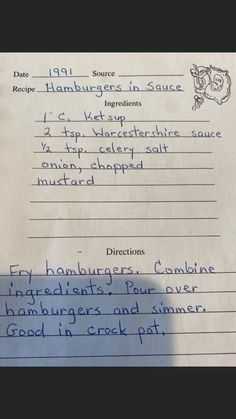 Date 1991 Source
Recipe Hamburgers in Sauce
Ingredients
1 C. Ketsup
2 tsp. Worcestershire sauce
½ tsp. celery salt
onion, chopped
mustard
Directions
Fry hamburgers. Combine
ingredients. Pour over
hamburgers and simmer.
Good in crock pot.